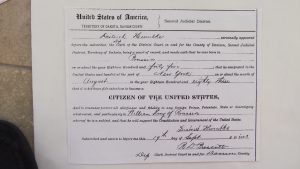 United States of America,
TERRITORY OF DAKOTA, RANSOM COUNTY.
Second Judicial District.
personally
appeared before the subscriber, the Clerk of the District Court in and for the County of Ransom, Second Judicial
District, Territory of Dakota, being a Court of record, and made oath that he was born in
Prussia
on or about the year Eighteen Hundred and forty five that he emigrated to the
United States and landed at the port of New York on or about the month of
August in the year Eighteen Hundred and eighty three
CITIZEN OF THE UNITED STATES,
and to renounce forever all allegiance and fidelity to any Foreign Prince, Potentate, State or Sovereignty
whatever, and particularly to William King of Prussia
whereof he is a subject, and that he will support the Constitution and Government of the United States.
Subscribed and sworn to before me this 19th day of Sept 1883
Clerk District Court in and for Ransom County.